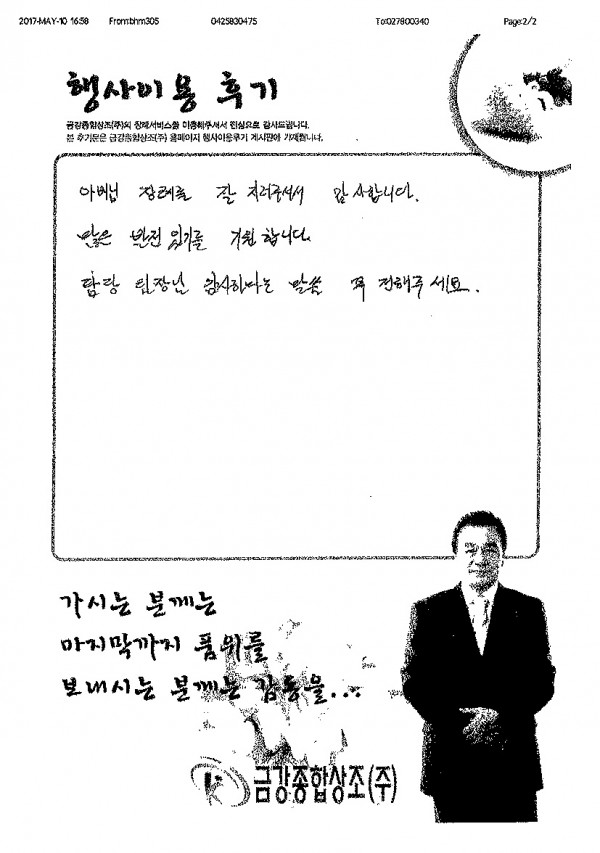 2017-MAY-10 16:58 From:bhm305 0425830475 To:027800340 Page:2/2
행사이용 후기
금강종합상조(주)의 장례서비스를 이용해주셔서 진심으로 감사드립니다.
본 후기문은 금강종합상조(주) 홈페이지 행사이용후기 게시판에 기재됩니다.
아버님 장례를 잘 치러주셔서 감사합니다.
많은 발전 있기를 기원합니다.
담당 팀장님 감사하다는 말씀 꼭 전해주세요.
가시는 분께는
마지막까지 품위를
보내시는 분께는 감동을...
금강종합상조(주)